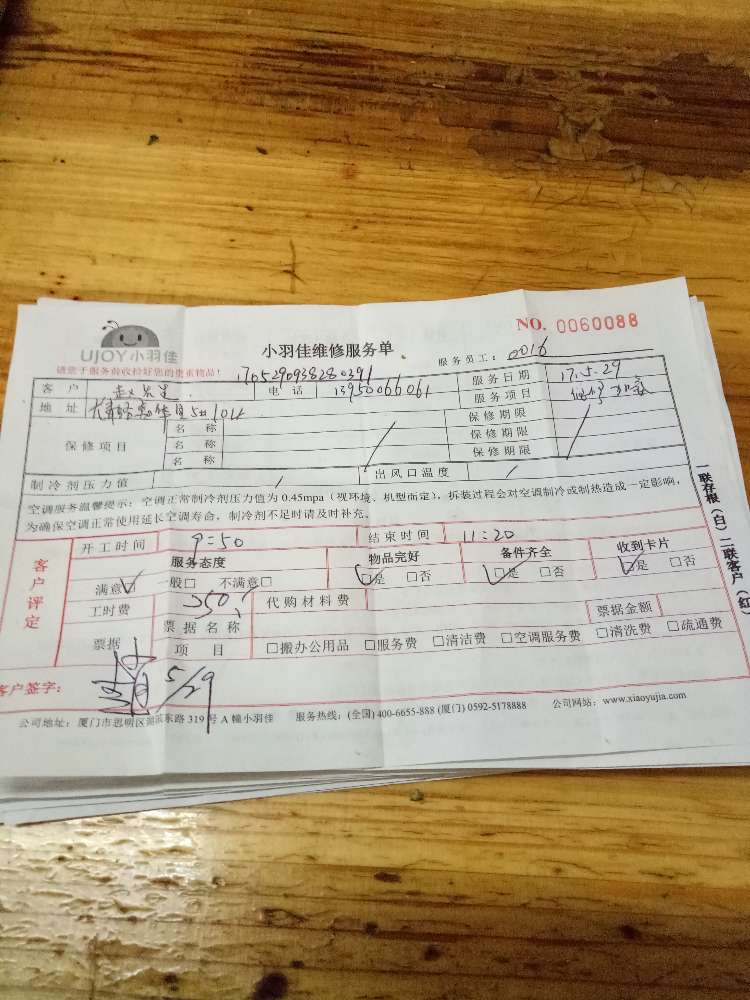 NO. 0060088
UJOY小羽佳
小羽佳维修服务单
服务员工: 0016
请您于服务前收拾好您的贵重物品!
1705290938280391
客户 赵先生 电话 13950066061 服务日期 17.5.29
地址 5# 104 服务项目
保修项目 名称 保修期限
名称 保修期限
名称 保修期限
制冷剂压力值 / 出风口温度 /
空调服务温馨提示: 空调正常制冷剂压力值为 0.45mpa (视环境、机型而定), 拆装过程会对空调制冷或制热造成一定影响,
为确保空调正常使用延长空调寿命, 制冷剂不足时请及时补充。
客户评定
开工时间 9:50 结束时间 11:20
服务态度 物品完好 备件齐全 收到卡片
满意☑ 一般□ 不满意□ ☑是 □否 ☑是 □否 ☑是 □否
工时费 350 代购材料费
票据 票据名称 票据金额
项目 □搬办公用品 □服务费 □清洁费 □空调服务费 □清洗费 □疏通费
客户签字: 5/29
公司地址: 厦门市思明区湖滨东路 319 号 A 幢小羽佳 服务热线: (全国) 400-6655-888 (厦门) 0592-5178888 公司网站: www.xiaoyujia.com
一联存根(白) 二联客户(红)